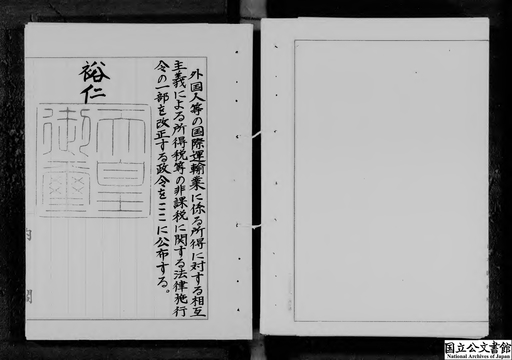 外国人等の国際運輸業に係る所得に対する相互
主義による所得税等の非課税に関する法律施行
令の一部を改正する政令をここに公布する。
裕仁
天皇
御璽
国立公文書館
National Archives of Japan